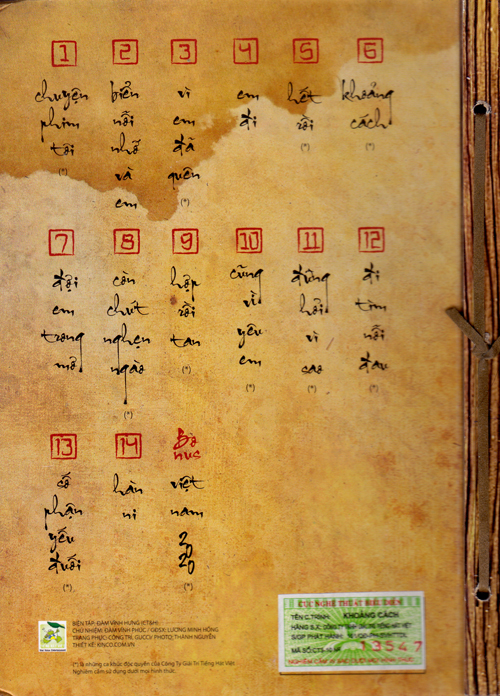 1
chuyện
phim
tôi
(*)
2
biển
nỗi
nhớ
và
em
3
vì
em
đã
quên
(*)
4
em
đi
5
hết
rồi
(*)
6
khoảng
cách
(*)
7
đợi
em
trong
mơ
8
còn
chút
nghẹn
ngào
(*)
9
hợp
rồi
tan
(*)
10
cũng
vì
yêu
em
(*)
11
đừng
hỏi
vì
sao
(*)
12
đi
tìm
nỗi
đau
(*)
13
số
phận
yếu
đuối
(*)
14
hàn
ni
Bo
nus
việt
nam
20
20
(*)
BIÊN TẬP: ĐÀM VĨNH HƯNG (CTSH)
CHỦ NHIỆM: ĐÀM VĨNH PHÚC / GĐSX: LƯƠNG MINH HỒNG
TRANG PHỤC: CÔNG TRÍ, GUCCI/ PHOTO: THÀNH NGUYỄN
THIẾT KẾ: KINCO.COM.VN
(*): là những ca khúc độc quyền của Công Ty Giải Trí Tiếng Hát Việt.
Nghiêm cấm sử dụng dưới mọi hình thức.
CỤC NGHỆ THUẬT BIỂU DIỄN
TÊN C.TRÌNH: KHOẢNG CÁCH
HÃNG S.X:
SỐ GP PHÁT HÀNH:
MÃ SỐ
3547